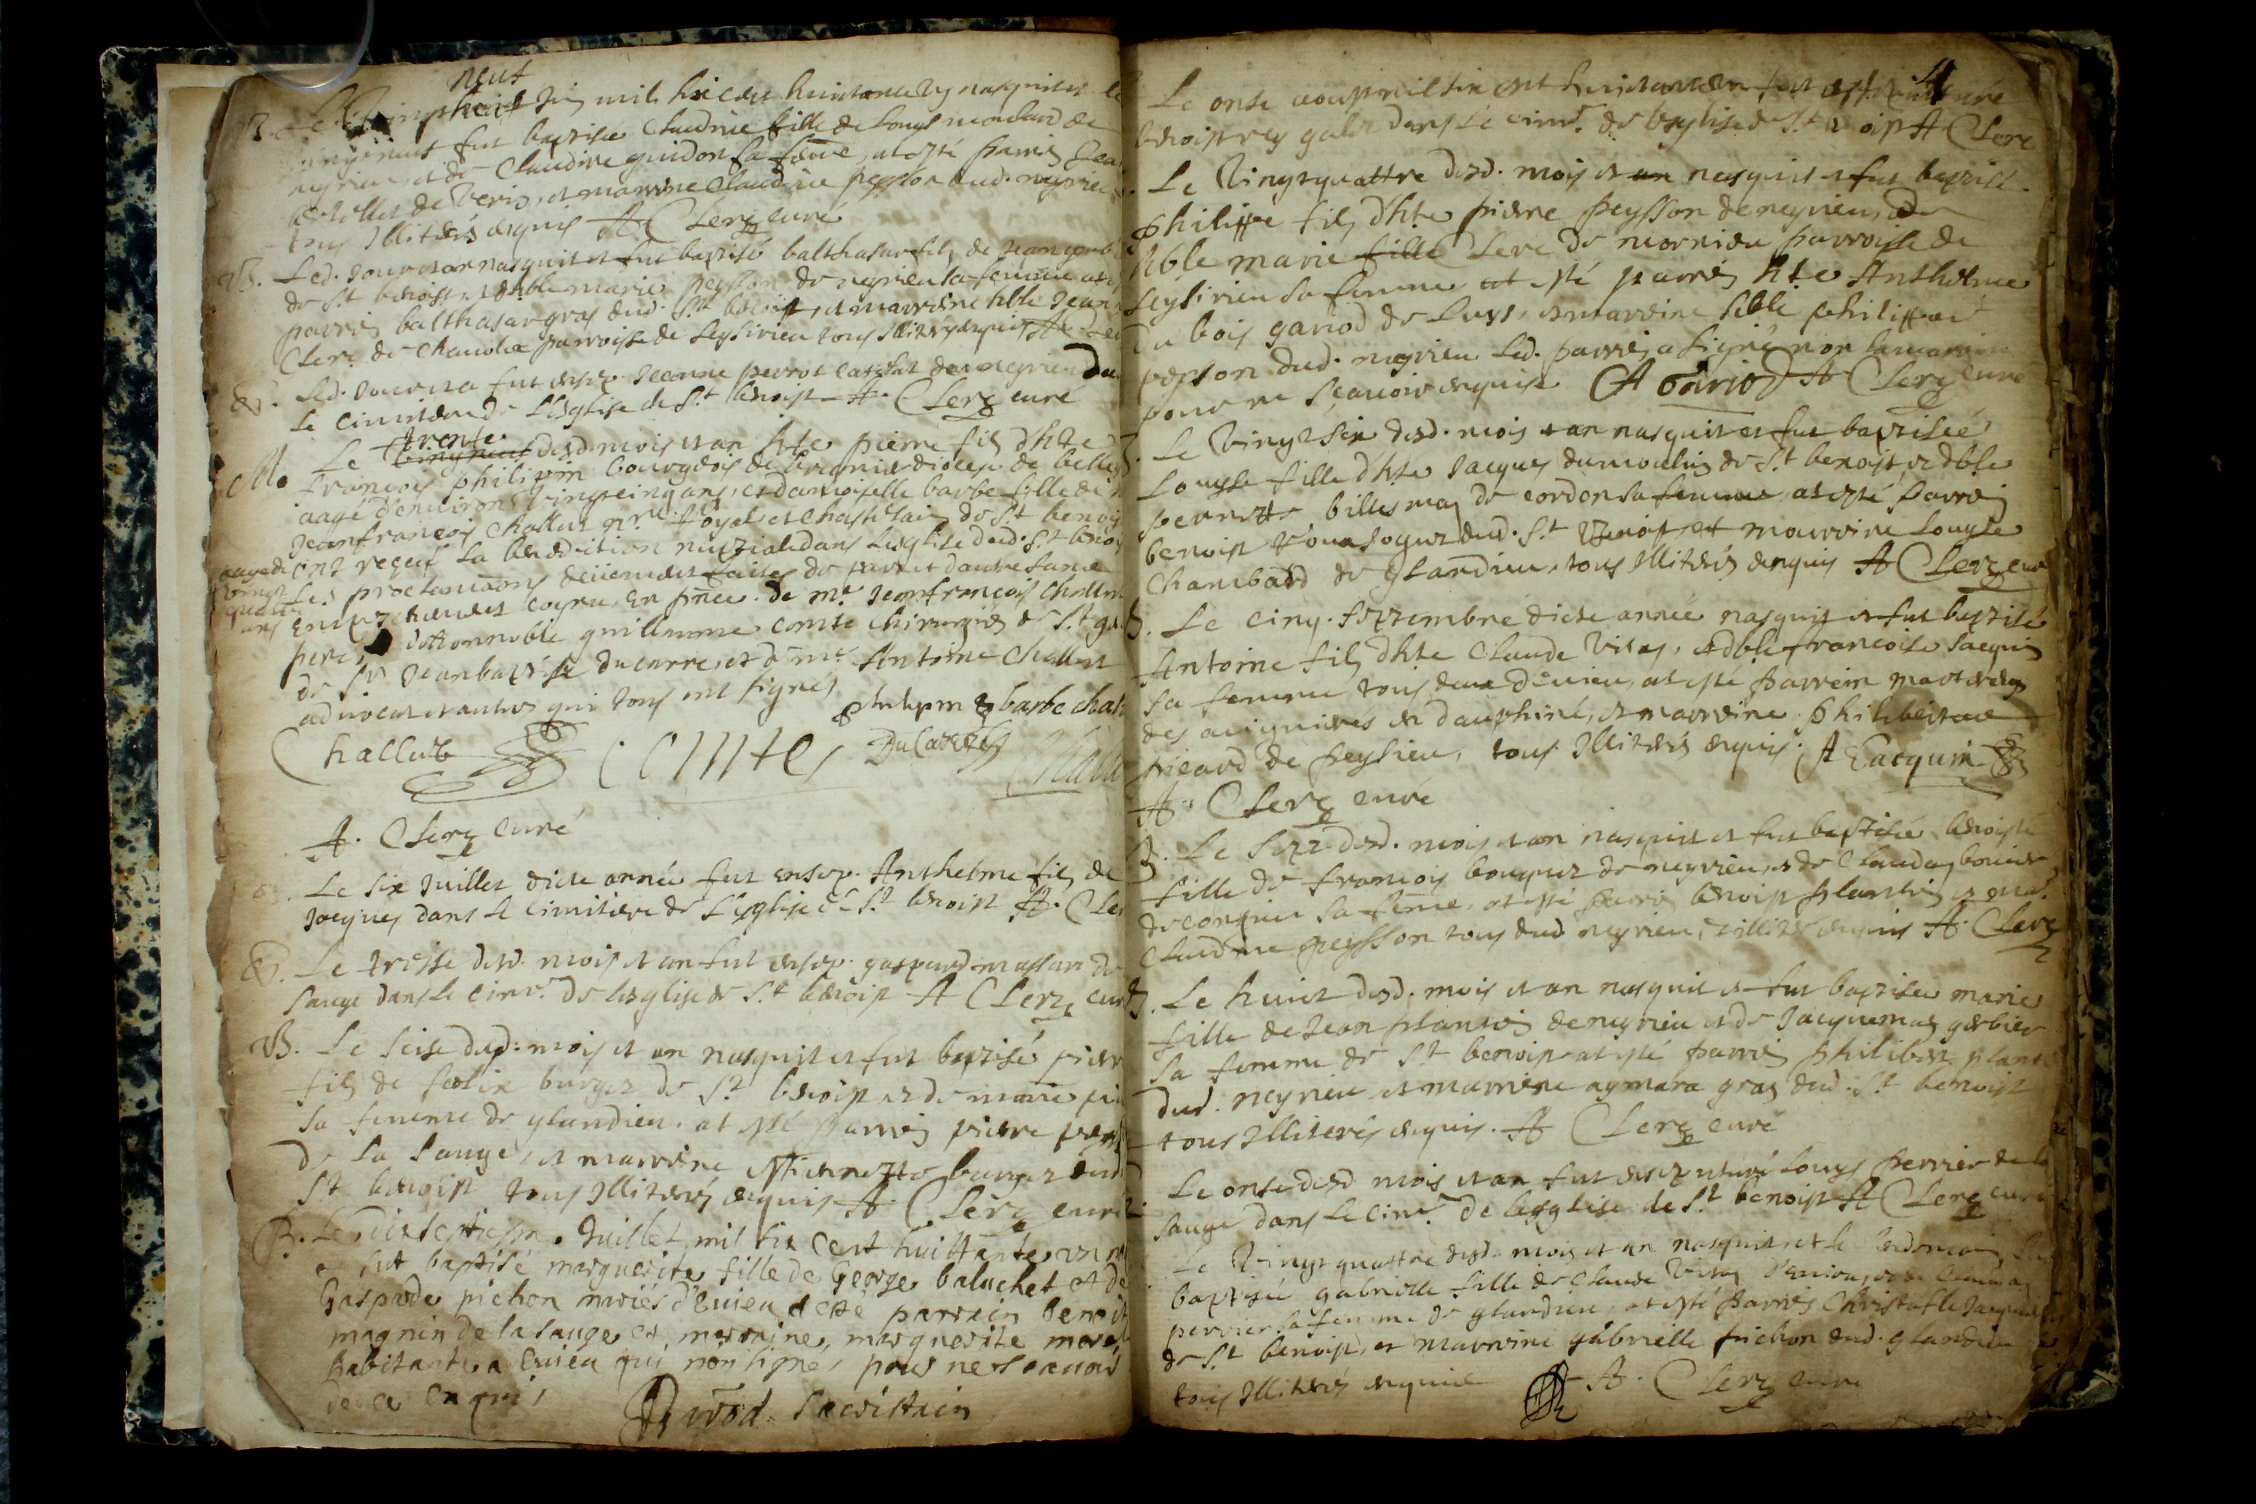 neuf
B. Le vingt huit juin mil six cens huictante un nasquit et
fut baptisée Claudine fille de Louys monlard de
neyrieu, et de Claudine guidon sa feme, at esté parrin
de veris, et marrine Claudine peysson dud. neyrieu
tous illiterés enquis A Clerc curé
B. Led. jour et an nasquit et fut baptisé balthasar fils de Jean
de St benoist et dhble marie peysson de neyrieu sa femme at
parrin balthasar gras dud. St benoist, et marrine hble Jean
Clerc de Chandos parroisse de Leysirieu tous illiterés enquis A. Cler
Led. jour et an fut ensep. Jeanne perrot de neyrieu da
le cimitiere de L'Esglise de St benoist A. Clerc curé
trente
M. Le vingtneuf dud. mois et an hte pierre fils dhte
françois philipin bourgeois de diocese de belley
aagé d'environ vingtcinq ans, et damoiselle barbe fille de
Jeanfrançois Challut royal et Chastelain de St benoi
aagé de ont reçeu la benediction nuptiale dans L'esglise dud. St beno
vingt les proclamaons deüement faites de part et dautre sans
quatre
ans empechement cogneu, En pnce de me Jeanfrançois Challut
pere, honnoble guillaume comte chirurgien de St ge
de Sr Jeanbaptiste ducarre, et de me Antoine Challut
advocat et autres qui tous ont signés
philipin barbe chal
Challut Comte DuCarre Challu
A. Clerc curé
Le six Juillet dicte année fut ensep. Anthelme fils de
Jacques dans le cimitiere de L'esglise de St benoist A. Cler
E. Le treise dud. mois et an fut ensep. gaspard massan de
Sauge dans le cimre. de Lesglise de St benoist A Clerc cur
B. Le seise dud. mois et an nasquit et fut baptisé pierr
fils de felix burges de St benoist et de marie pi
sa femme de glandieu. at esté parrin pierre
de La Sauge, et marrine estiennette dud
St benoist tous illiterés enquis A. Clerc curé
B. Le dixseptiesme Juillet mil six cent huittante un
et fut baptisé marguerite fille de George baluchet et de
Gasparde pichon mariés d'Evieu a esté parrain benoit
magnin de la sauge et marraine, marguerite morel
habitante a Evieu qui n'ont signé pour ne sçavoir
de ce enquis
sacristain
Le onse aoust mil six cent huictante un fut ensepulturé
benoist rey galet dans le cimre. de Lesglise de St benoist A Clerc
Le vingtquattre dud. mois et an nasquit et fut baptisé
philippe fils dhte pierre peysson de neyrieu, et de
hble marie fille Clerc de mornieu parroisse de
Leysirieu sa femme at esté parrin hte Anthelme
du bois gariod de Luys, et marreine hble philippa
peysson dud. neyrieu Led. parrin a signé non la marrine
pour ne sçavoir enquise A Gariod A Clerc curé
B. Le vingt six dud. mois et an nasquit et fut baptisée
Louyse fille dhte Jacques dumoulin de St benoist, et dhble
pernette billiemaz de cordon sa femme, at esté parrin
benoist dud. St Benoist et marrine Louyse
Chambard de glandieu, tous illiterés enquis A Clerc cur
B. Le cinq. septembre dicte année nasquit et fut baptisé
Antoine fils dhte Claude vitoz, et dhble françoise Jacquin
sa femme tous deux d'evieu, at esté parrein
des avignieres en dauphiné, et marreine philiberte
picard de peyrieu, tous illiterés enquis. A Jacquin
A. Clerc curé
B. Le sept dud. mois et an nasquit et fut baptisée benoiste
fille de françois bouquet de neyrieu, et de Claudaz
de conzieu sa feme, at esté parrin benoist plantin et mar.
Claudine peysson tous dud neyrieu, illiterés enquis A. Clerc
B. Le huit dud. mois et an nasquit et fut baptisée marie
fille de Jean plantin de neyrieu et de Jacquemaz gerbier
sa femme de St benoist at esté parrin philibert plant
dud. neyrieu et marrene aymara gras dud. St benoist
tous illiterés enquis. A Clerc curé
Le onse dud mois et an fut ensepulturé Louys perrier de la
Sauge dans le cimre. de Lesglise de St benoist A Clerc curé
Le vingtquattre dud. mois et an nasquit et le lendemain fut
baptisée gabrielle fille de Claude vitoz d'Evieu, et de Claudaz
perrier sa femme de glandieu, at esté parrin Christofle Jacquin
de St benoist, et marrine gabrielle pichon dud. glandieu
tous illiterés enquis A. Clerc curé